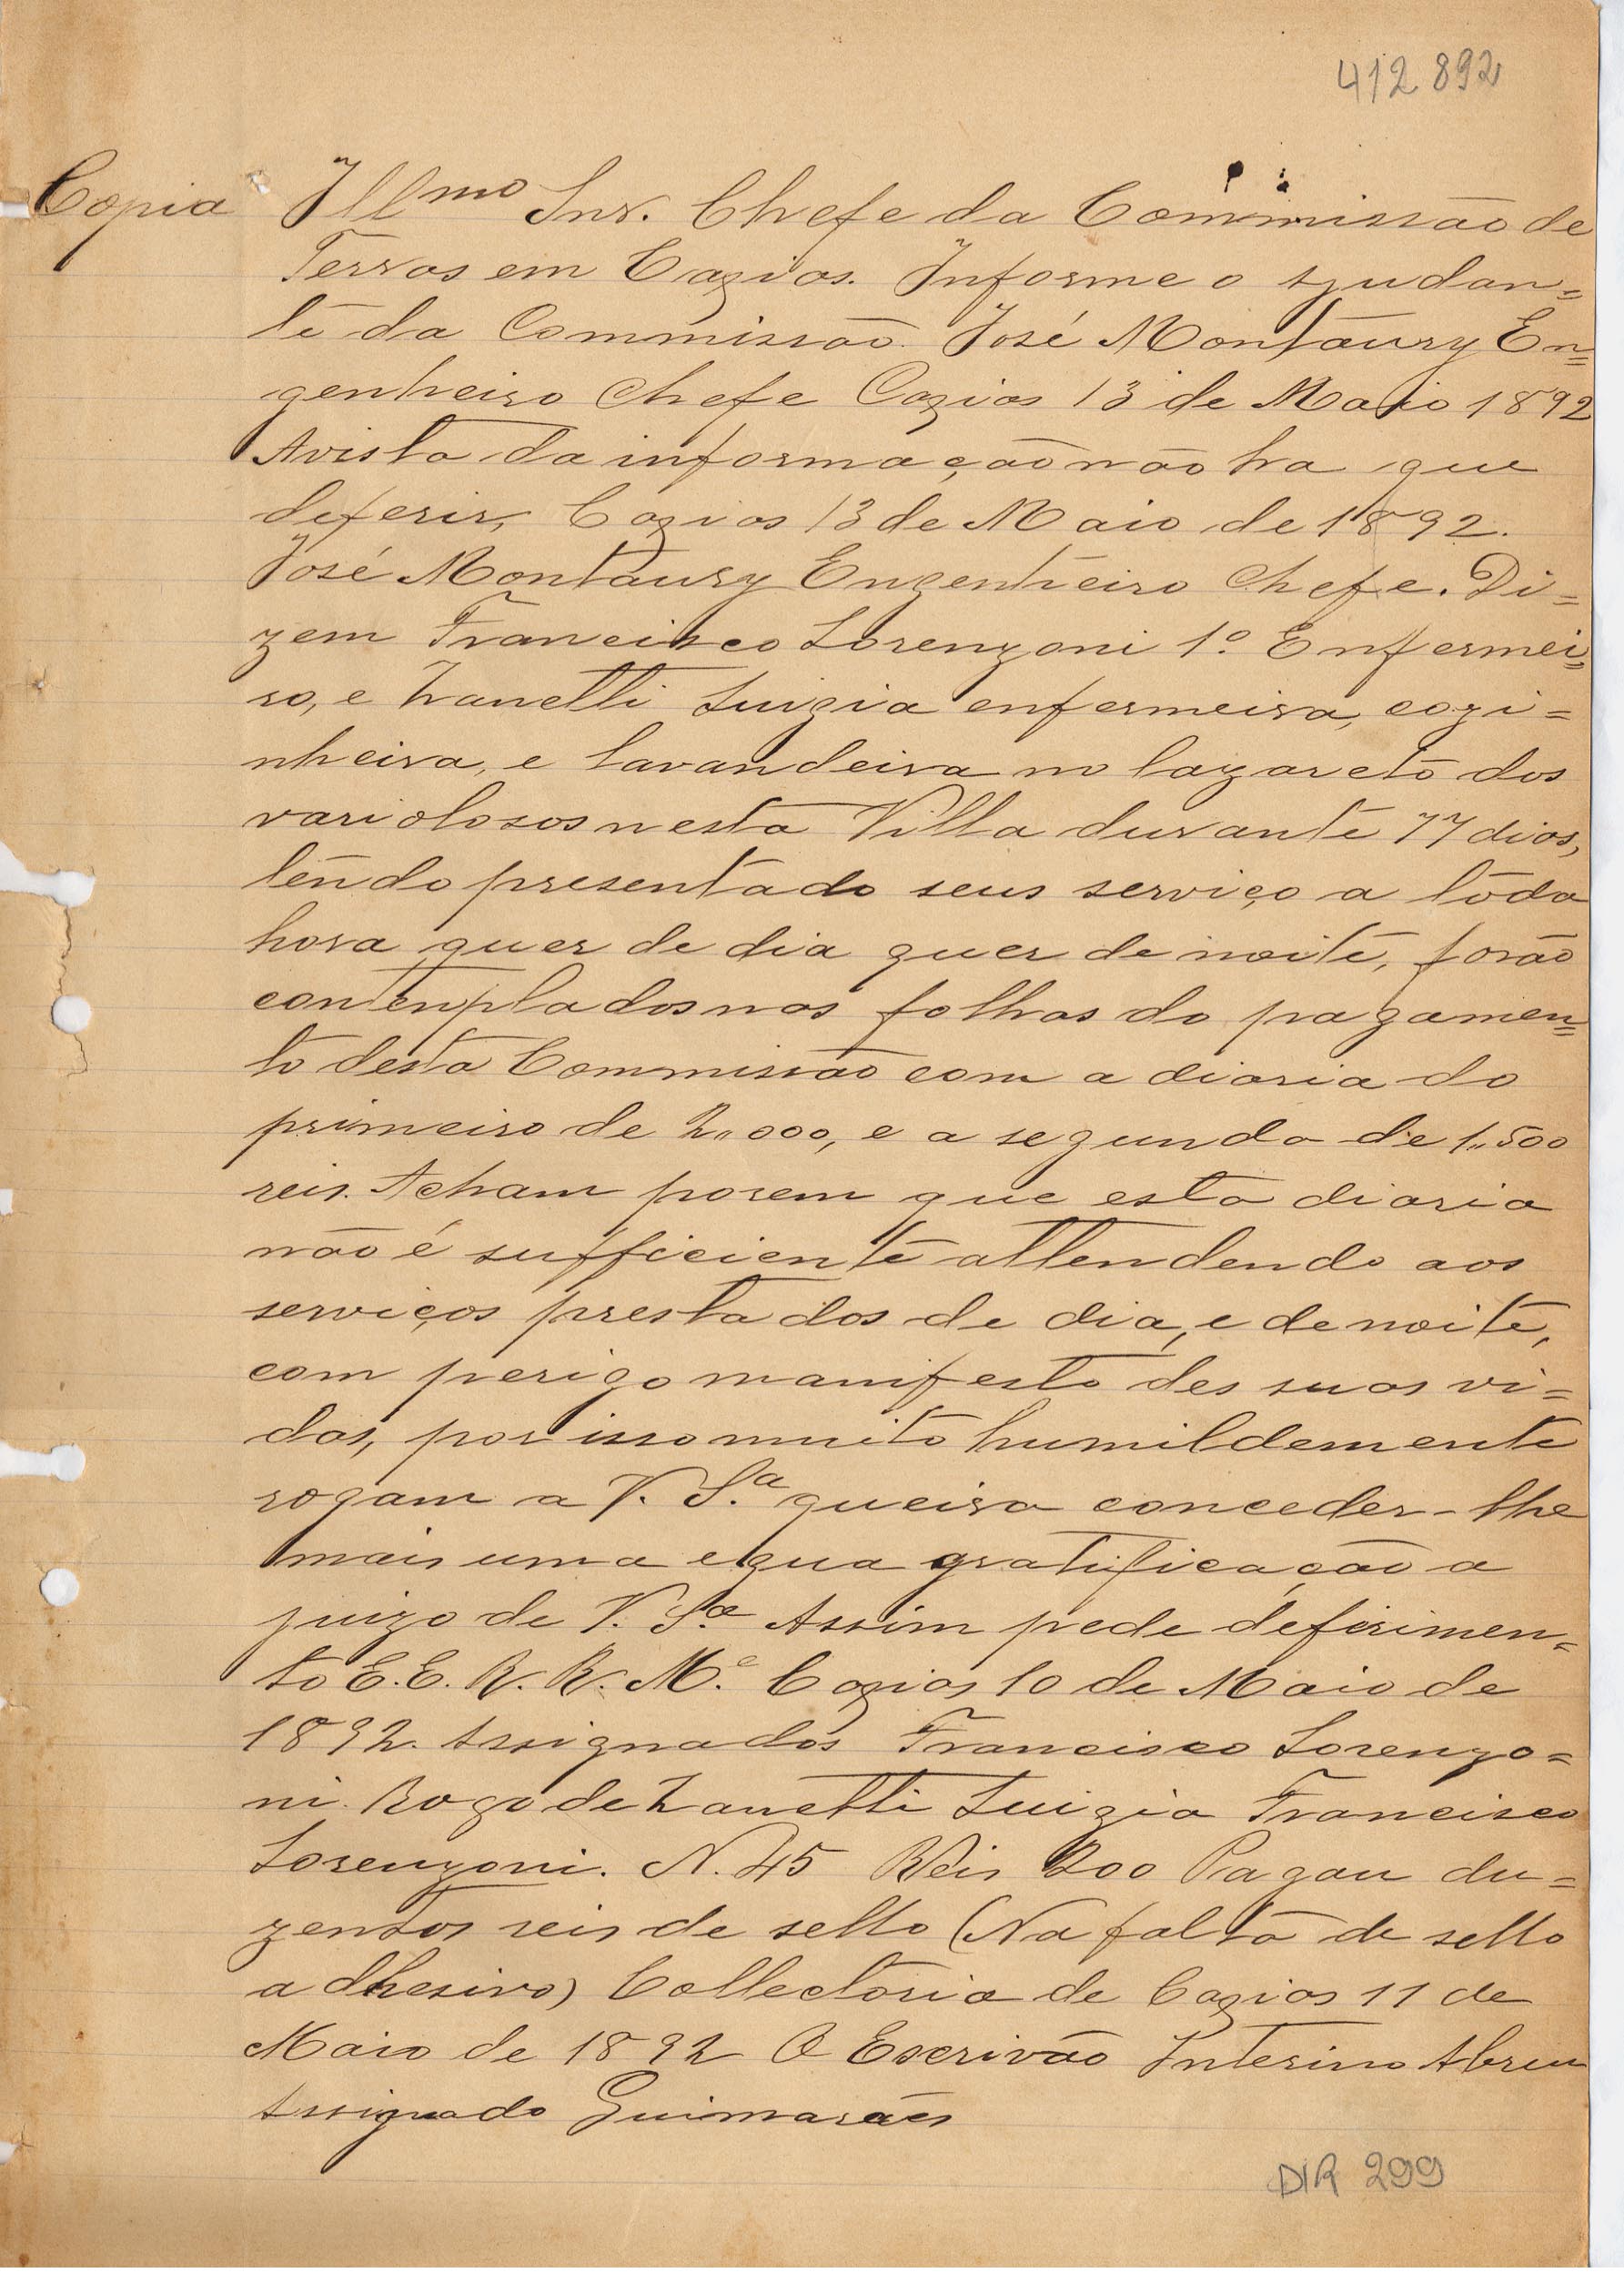 412 892
Copia Illmo Snr. Chefe da Commissão de
Terras em Caxias. Informe o Ajudan=
te da Commissão. José Montaury En=
genheiro Chefe Caxias 13 de Maio 1892
Avista da informação não ha que
deferir, Caxias 13 de Maio de 1892.
José Montaury Engenheiro Chefe. Di=
zem Francisco Lorenzoni 1º Enfermei=
ro, e Zanetti Luigia enfermeira, cozi=
nheira, e lavandeira no lazareto dos
variolosos nesta Villa durante 77 dias,
tendo presentado seus serviço a toda
hora quer de dia quer de noite, forão
contenplados nas folhas do pagamen=
to desta Commissão com a diaria do
primeiro de 2,,000, e a segunda de 1,,500
reis. Acham porem que esta diaria
não é sufficiente attendendo aos
serviços prestados de dia, e de noite,
com perigo manifesto des suas vi=
das, por isso muito humildemente
rogam a V. S.ª queira conceder-lhe
mais uma egua gratificação a
juizo de V. S.ª Assim pede deferimen=
to E.E. R. R. M.e Caxias 10 de Maio de
1892. Assignados Francisco Lorenzo=
ni. Rogo de Zanetti Luigia Francisco
Lorenzoni. N. 45 Reis 200 Pagau du=
zentos reis de sello (Na falta de sello
adhesivo) Collectoria de Caxias 11 de
Maio de 1892 O Escrivão Interino Abreu
Assignado Guimarães
DIR 299